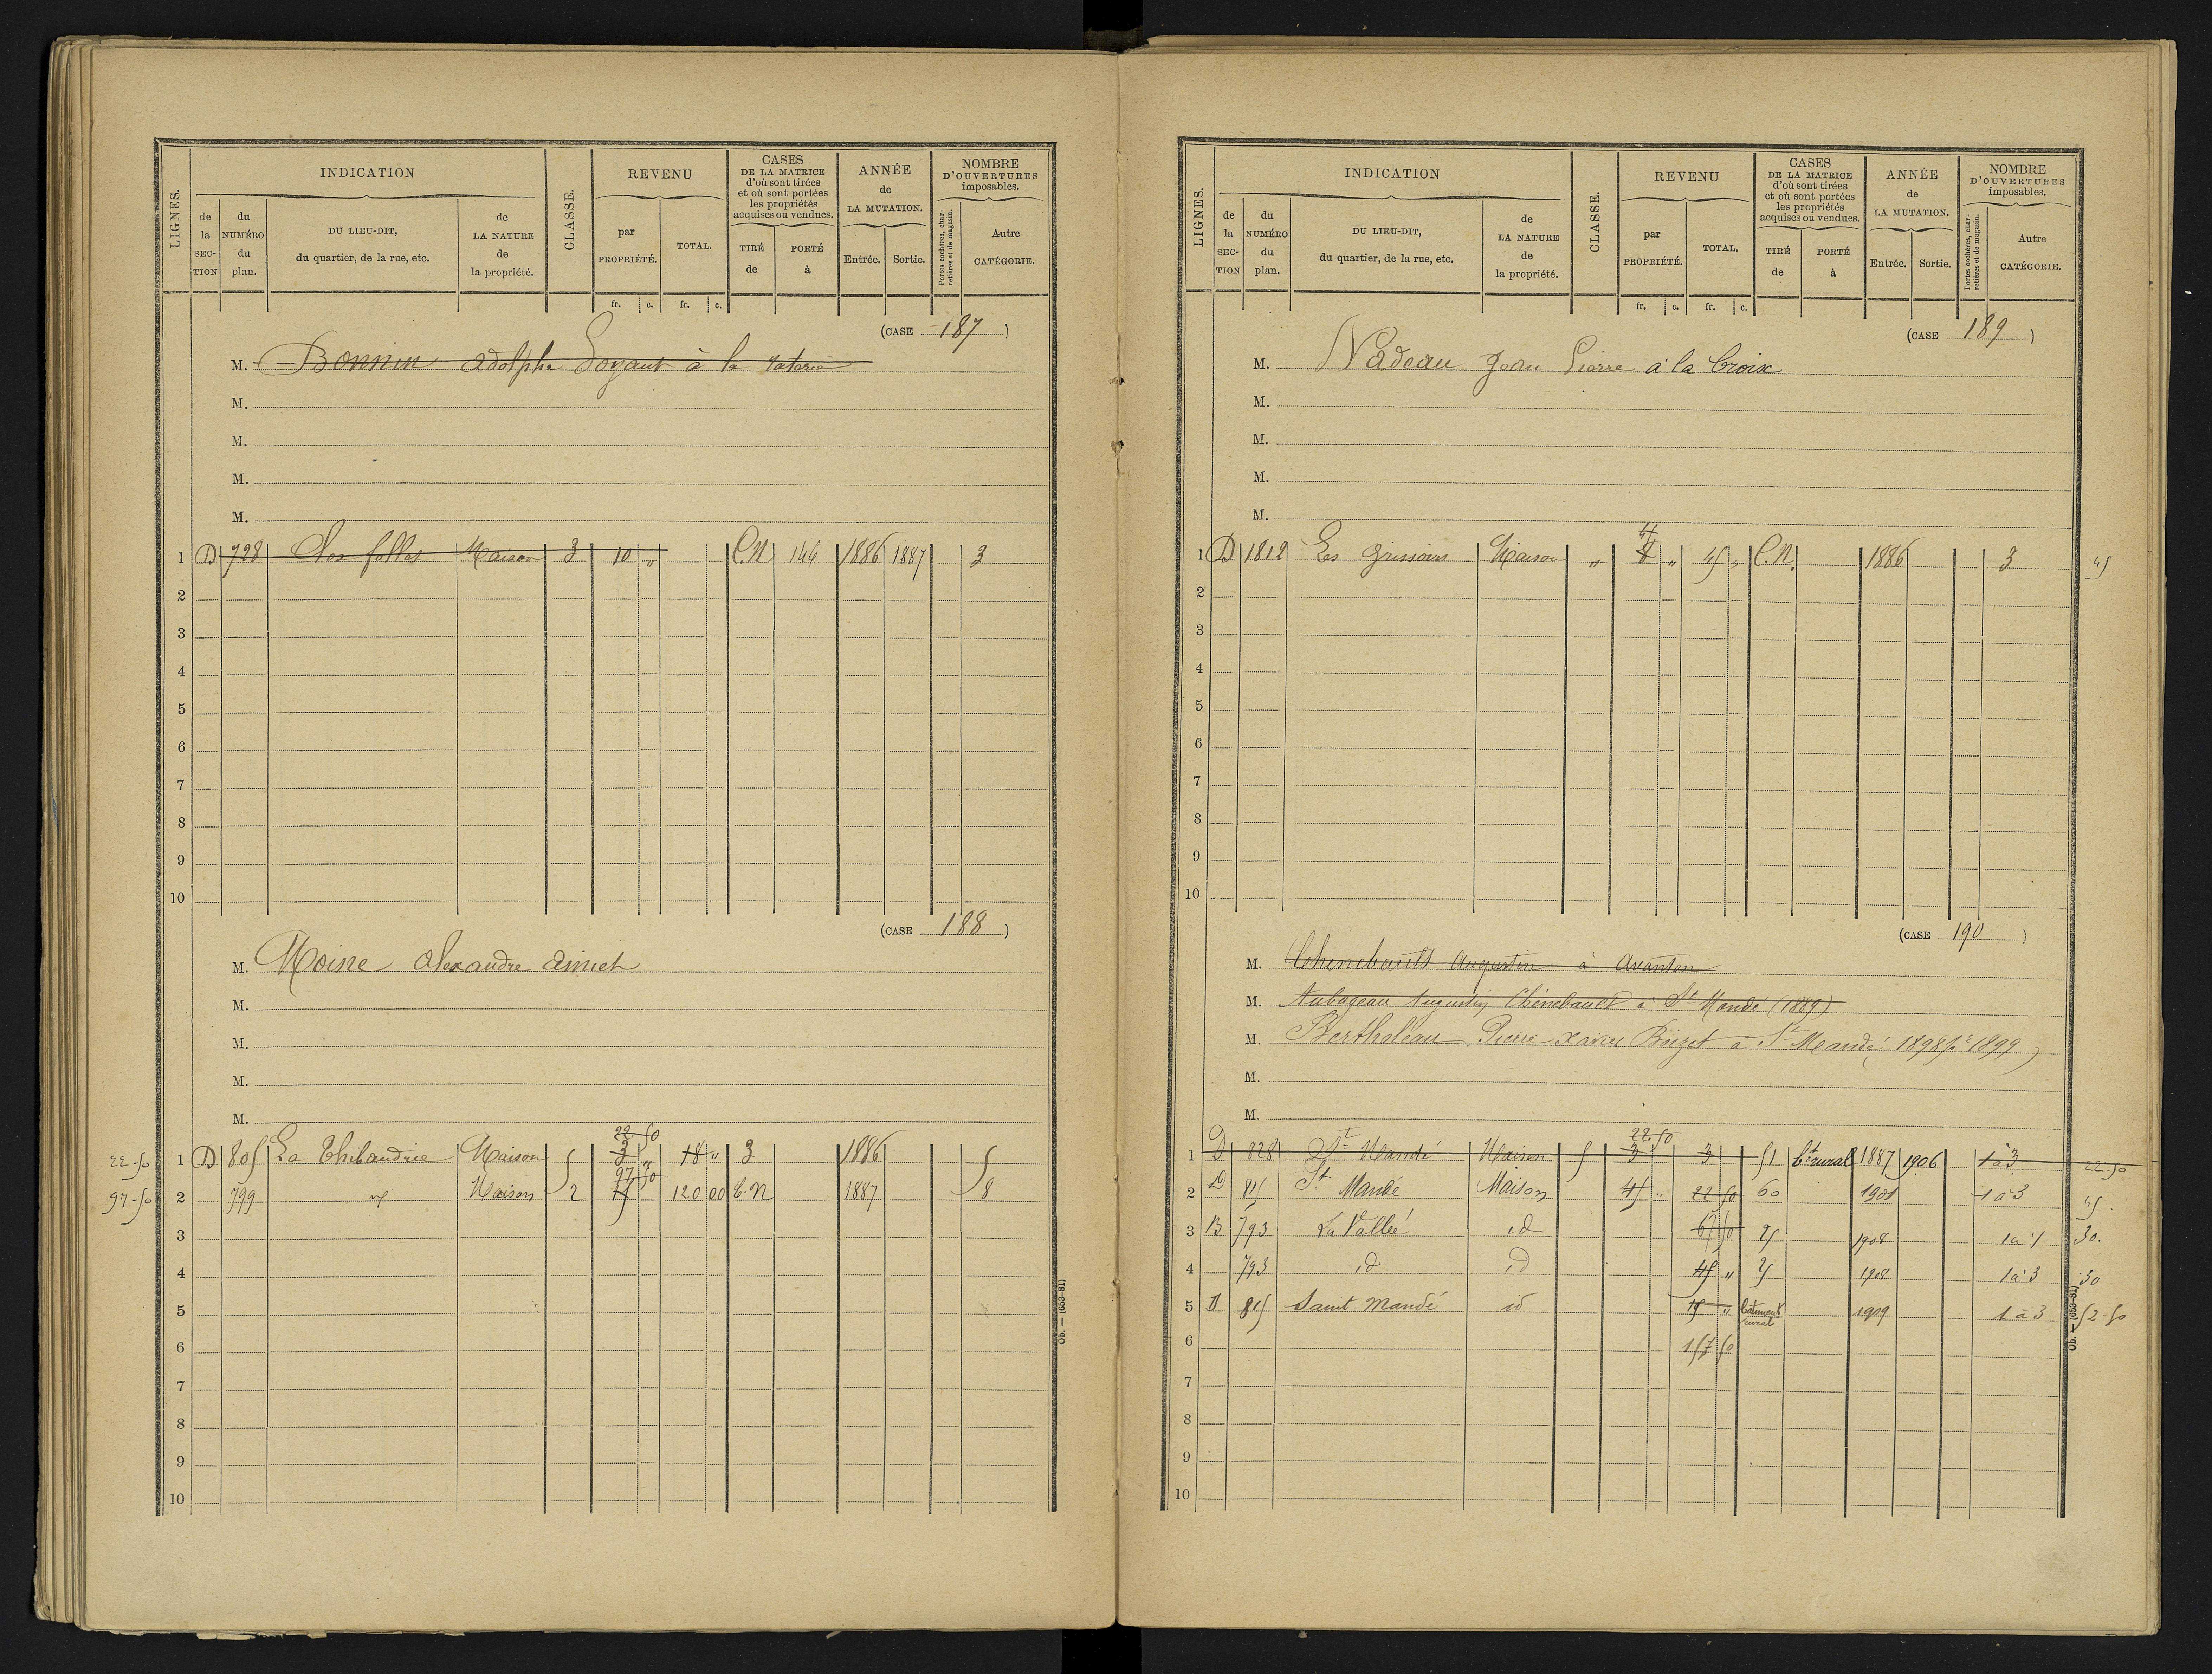 LIGNES.
INDICATION
de la SECTION
du NUMÉRO du plan.
DU LIEU-DIT, du quartier, de la rue, etc.
de LA NATURE de la propriété.
CLASSE.
REVENU
par PROPRIÉTÉ.
TOTAL.
fr. c. fr. c.
CASES DE LA MATRICE d'où sont tirées et où sont portées les propriétés acquises ou vendues.
TIRÉ de
PORTÉ à
ANNÉE de LA MUTATION.
Entrée. Sortie.
NOMBRE D'OUVERTURES imposables.
Portes cochères, charretières et de magasin.
Autre CATÉGORIE.
(CASE 187)
M. Bonnin adolphe à la
M.
M.
M.
M.
1 D 728 Maison 3 10 " C.N 146 1886 1887 3
2
3
4
5
6
7
8
9
10
(CASE 188)
M. Moine Alexandre
M.
M.
M.
M.
22 50
22-50 1 D 805 La Thibaudrie Maison 5 3 " 18 " 3 1886 5
97 50
97-50 2 799 Maison 2 15 120 00 C.N 1887 8
3
4
5
6
7
8
9
10
Ob. — (653-81)
LIGNES.
INDICATION
de la SECTION
du NUMÉRO du plan.
DU LIEU-DIT, du quartier, de la rue, etc.
de LA NATURE de la propriété.
CLASSE.
REVENU
par PROPRIÉTÉ.
TOTAL.
fr. c. fr. c.
CASES DE LA MATRICE d'où sont tirées et où sont portées les propriétés acquises ou vendues.
TIRÉ de
PORTÉ à
ANNÉE de LA MUTATION.
Entrée. Sortie.
NOMBRE D'OUVERTURES imposables.
Portes cochères, charretières et de magasin.
Autre CATÉGORIE.
(CASE 189)
M. Nadeau Jean Pierre à la Croix
M.
M.
M.
M.
45
1 D 1812 Les Maison " 8 " 45 " C.N. 1886 3 45
2
3
4
5
6
7
8
9
10
(CASE 190)
M. Augustin à Availton
M. Augustin à St Mandé (1889)
M. Bertholeau Pierre Xavier à St Mandé 1898 pr 1899)
M.
M.
22.50
1 D 828 St Mandé Maison 5 3 3 51 Bt rural 1887 1906 1 à 3 22-50
2 D 815 St Mandé Maison 45 " 22 50 60 1901 1 à 3 45.
3 B 793 La Vallée id 67 50 25 1908 1 à 1 30.
4 793 id id 45 " 25 1908 1 à 3 30
5 D 815 Saint Mandé id " bâtiment rural 1909 1 à 3 52-50
6 157 50
7
8
9
10
Ob. — (653-81)